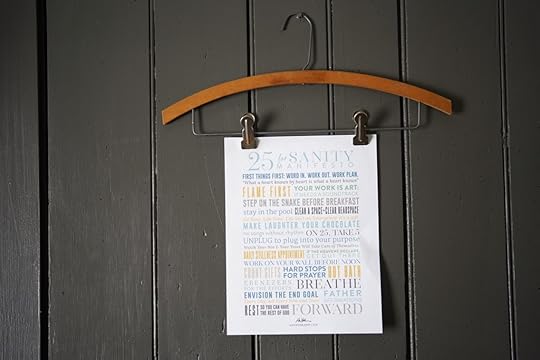 25 for SANITY
MANIFESTO
FIRST THINGS FIRST: WORD IN. WORK OUT. WORK PLAN.
"What a heart knows by heart is what a heart knows"
FLAME FIRST YOUR WORK IS ART:
IT NEEDS A SOUNDTRACK
STEP ON THE SNAKE BEFORE BREAKFAST
stay in the pool CLEAR A SPACE=CLEAR HEADSPACE
MAKE LAUGHTER YOUR CHOCOLATE
no songs without rhythm ON 25, TAKE 5
UNPLUG to plug into your purpose
DAILY STILLNESS APPOINTMENT
GET OUTSIDE
WORK ON YOUR WALL BEFORE NOON
COUNT GIFTS HARD STOPS FOR PRAYER HOT BATH
EBENEZERS FOR THE EFFORTS BREATHE
ENVISION THE END GOAL FATHER
REST SO YOU CAN HAVE THE REST OF GOD FORWARD